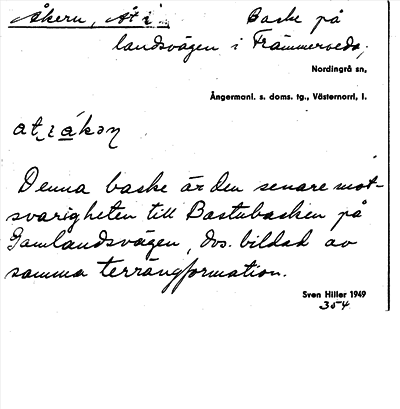 Åkern, At i   Baske på
landsvägen i Främmerveda,
Nordingrå sn,
Ångermanl. s. doms. tg., Västernorrl, l.
at ı åkəṇ
Denna baske är den senare mot-
svarigheten till Bastubasken på
Gamlandsvägen, dvs. bildad av
samma terrängformation.
Sven Hiller 1949
354